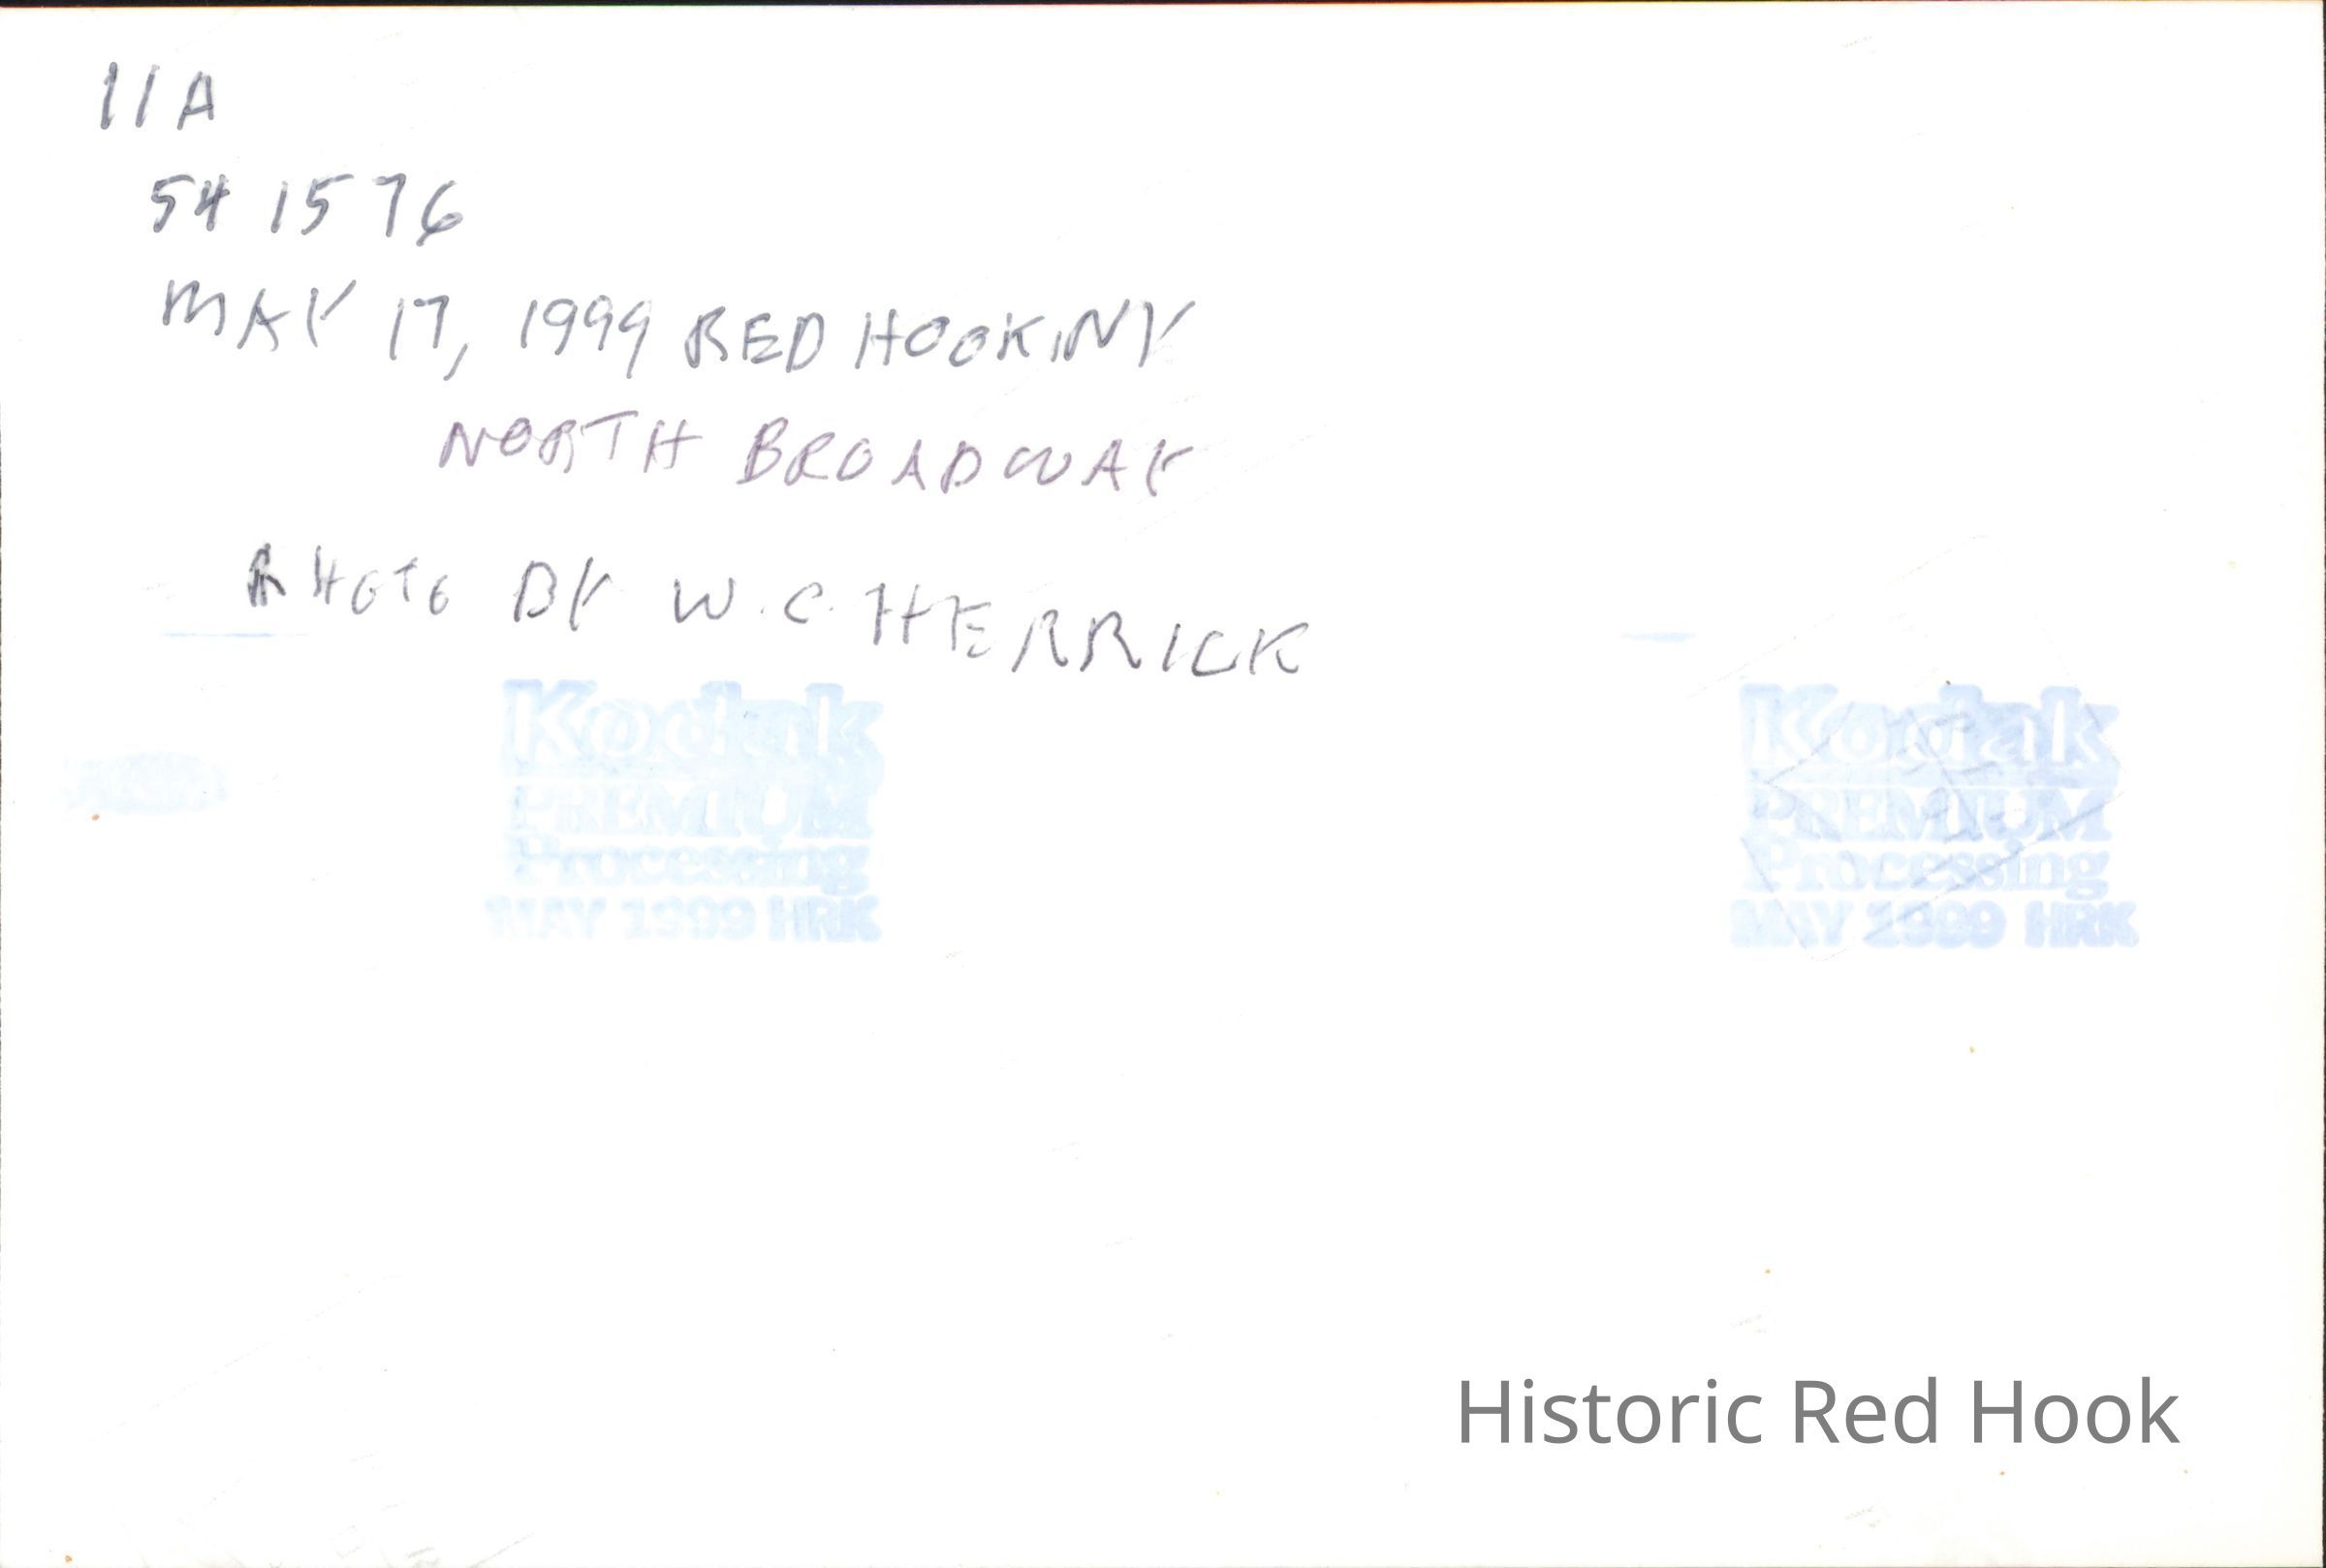 11A
54 15 76
MAY 17, 1999 RED HOOK, NY
NORTH BROADWAY
PHOTO BY W. C. HERRICK
Kodak
PREMIUM
Processing
MAY 1999 HRK
Kodak
PREMIUM
Processing
MAY 1999 HRK
Historic Red Hook